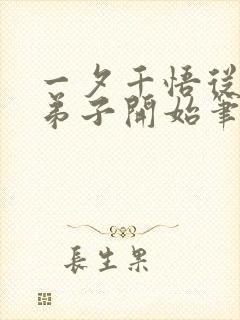 一夕千悟從
弟子開始筆
長生果